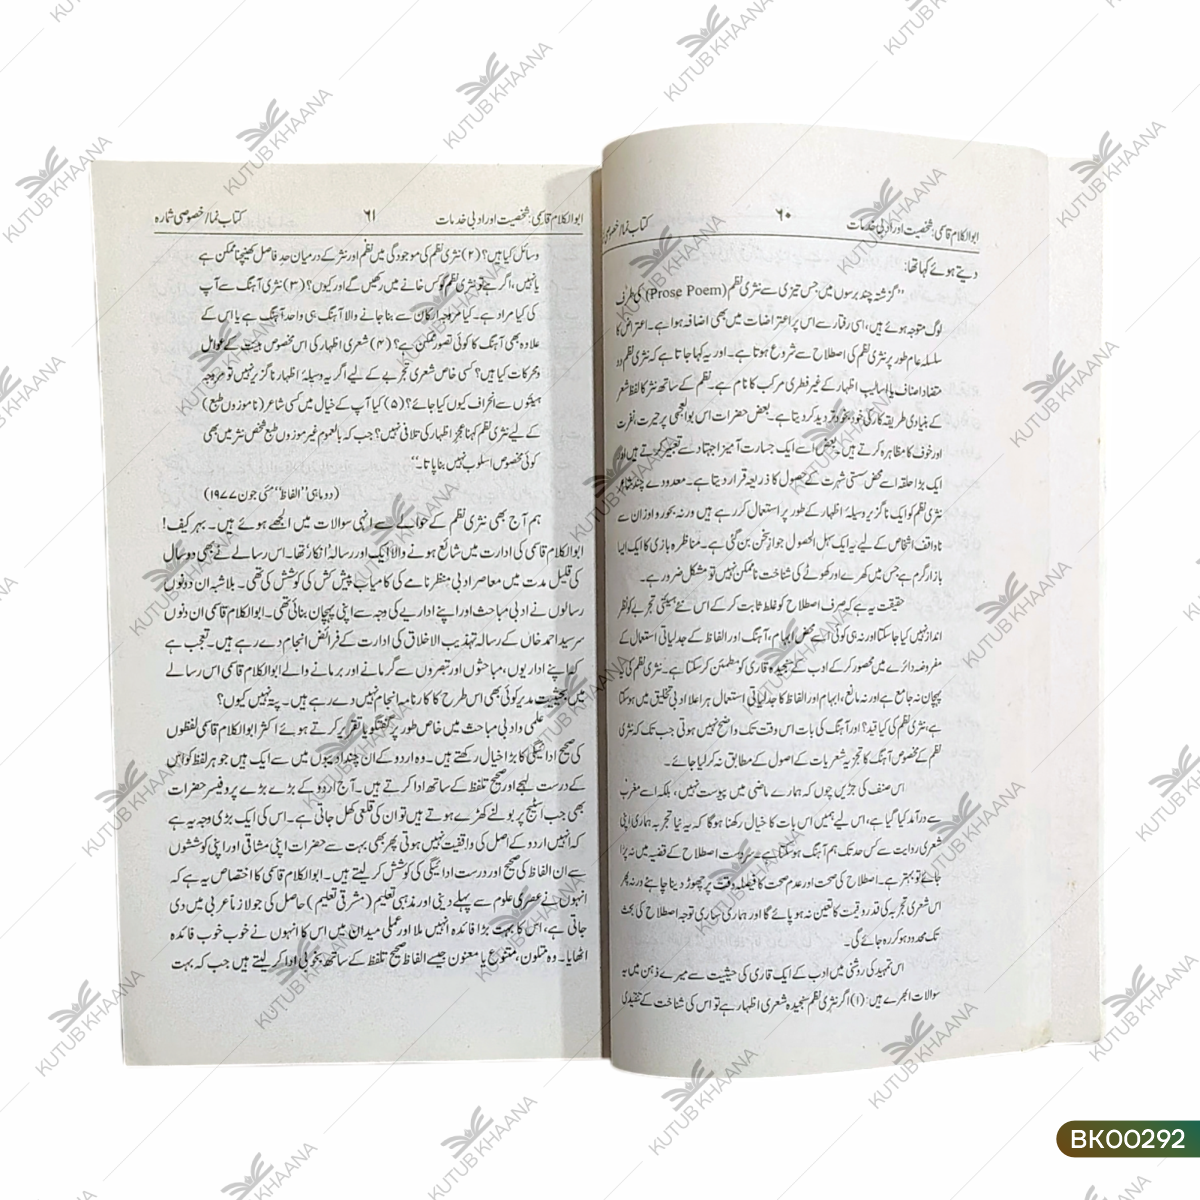 ابوالکلام قاسمی: شخصیت اور ادبی خدمات
۶۰
کتاب نما/خصوصی
دیتے ہوئے کہا تھا:
”گزشتہ چند برسوں میں جس تیزی سے نثری نظم (Prose Poem) کی طرف
لوگ متوجہ ہوئے ہیں، اسی رفتار سے اس پر اعتراضات میں بھی اضافہ ہوا ہے۔ اعتراض کا
سلسلہ عام طور پر نثری نظم کی اصطلاح سے شروع ہوتا ہے۔ اور یہ کہا جاتا ہے کہ نثری نظم دو
متضاد اصناف یا اسالیب اظہار کے غیر فطری مرکب کا نام ہے۔ نظم کے ساتھ نثر کا لفظ شعر
کے بنیادی طریقۂ کار کی خود بخود تردید کر دیتا ہے۔ بعض حضرات اس بوالعجبی پر حیرت، نفرت
اور خوف کا مظاہرہ کرتے ہیں۔ بعض اسے ایک جسارت آمیز اجتہاد سے تعبیر کرتے ہیں اور
ایک بڑا حلقہ اسے محض سستی شہرت کے حصول کا ذریعہ قرار دیتا ہے۔ معدودے چند شاعر
نثری نظم کو ایک ناگزیر وسیلۂ اظہار کے طور پر استعمال کر رہے ہیں ورنہ بحور و اوزان سے
ناواقف اشخاص کے لیے یہ ایک سہل الحصول جواز سخن بن گئی ہے۔ مناظرہ بازی کا ایک ایسا
بازار گرم ہے جس میں کھرے اور کھوٹے کی شناخت ناممکن نہیں تو مشکل ضرور ہے۔
حقیقت یہ ہے کہ صرف اصطلاح کو غلط ثابت کر کے اس نئے ہیئتی تجربے کو نظر
انداز نہیں کیا جا سکتا اور نہ ہی کوئی اسے محض ابہام، آہنگ اور الفاظ کے جدلیاتی استعمال کے
مفروضہ دائرے میں محصور کر کے ادب کے سنجیدہ قاری کو مطمئن کر سکتا ہے۔ نثری نظم کی کیا
پہچان نہ جامع ہے اور نہ مانع، ابہام اور الفاظ کا جدلیاتی استعمال ہر اعلا ادبی تخلیق میں ہو سکتا
ہے، نثری نظم کی کیا قید؟ اور آہنگ کی بات اس وقت تک واضح نہیں ہوتی جب تک کہ نثری
نظم کے مخصوص آہنگ کا تجزیہ شعریات کے اصول کے مطابق نہ کر لیا جائے۔
اس صنف کی جڑیں چوں کہ ہمارے ماضی میں پیوست نہیں، بلکہ اسے مغرب
سے درآمد کیا گیا ہے، اس لیے ہمیں اس بات کا خیال رکھنا ہوگا کہ یہ نیا تجربہ ہماری اپنی
شعری روایت سے کس حد تک ہم آہنگ ہو سکتا ہے۔ سر دست اصطلاح کے قضیہ میں نہ پڑا
جائے تو بہتر ہے۔ اصطلاح کی صحت اور عدم صحت کا فیصلہ وقت پر چھوڑ دینا چاہئے ورنہ پھر
اس شعری تجربہ کی قدر و قیمت کا تعین نہ ہو پائے گا اور ہماری ساری توجہ اصطلاح کی بحث
تک محدود ہو کر رہ جائے گی۔
اس تمہید کی روشنی میں ادب کے ایک قاری کی حیثیت سے میرے ذہن میں یہ
سوالات ابھرے ہیں: (۱) اگر نثری نظم سنجیدہ شعری اظہار ہے تو اس کی شناخت کے تنقیدی
ابوالکلام قاسمی: شخصیت اور ادبی خدمات
۶۱
کتاب نما/خصوصی شمارہ
وسائل کیا ہیں؟ (۲) نثری نظم کی موجودگی میں نظم اور نثر کے درمیان حد فاصل کھینچنا ممکن ہے
یا نہیں، اگر ہے تو نثری نظم کو کس خانے میں رکھیں گے اور کیوں؟ (۳) نثری آہنگ سے آپ
کی کیا مراد ہے۔ کیا مروجہ ارکان سے بنا جانے والا آہنگ ہی واحد آہنگ ہے یا اس کے
علاوہ بھی آہنگ کا کوئی تصور ممکن ہے؟ (۴) شعری اظہار کی اس مخصوص ہیئت کے عوامل
و محرکات کیا ہیں؟ کسی خاص شعری تجربے کے لیے اگر یہ وسیلۂ اظہار ناگزیر نہیں تو مروجہ
ہیئتوں سے انحراف کیوں کیا جائے؟ (۵) کیا آپ کے خیال میں کسی شاعر (ناموزوں طبع)
کے لیے نثری نظم کہنا عجز اظہار کی تلافی نہیں؟ جب کہ بالعموم غیر موزوں طبع شخص نثر میں بھی
کوئی مخصوص اسلوب نہیں بنا پاتا۔“
(دو ماہی ”الفاظ“ مئی جون ۱۹۷۷)
ہم آج بھی نثری نظم کے حوالے سے انہی سوالات میں الجھے ہوئے ہیں۔ بہر کیف!
ابوالکلام قاسمی کی ادارت میں شائع ہونے والا ایک اور رسالہ ’انکار‘ تھا۔ اس رسالے نے بھی دو سال
کی قلیل مدت میں معاصر ادبی منظر نامے کی کامیاب پیش کش کی کوشش کی تھی۔ بلاشبہ ان دونوں
رسالوں نے ادبی مباحث اور اپنے اداریے کی وجہ سے اپنی پہچان بنائی تھی۔ ابوالکلام قاسمی ان دنوں
سرسید احمد خاں کے رسالہ تہذیب الاخلاق کی ادارت کے فرائض انجام دے رہے ہیں۔ تعجب ہے
کہ اپنے اداریوں، مباحثوں اور تبصروں سے گرمانے اور برمانے والے ابوالکلام قاسمی اس رسالے
میں بحیثیت مدیر کوئی بھی اس طرح کا کارنامہ انجام نہیں دے رہے ہیں۔ پتہ نہیں کیوں؟
علمی و ادبی مباحث میں خاص طور پر گفتگو یا تقریر کرتے ہوئے اکثر ابوالکلام قاسمی لفظوں
کی صحیح ادائیگی کا بڑا خیال رکھتے ہیں۔ وہ اردو کے ان چند ادیبوں میں سے ایک ہیں جو ہر لفظ کو اس
کے درست لہجے اور صحیح تلفظ کے ساتھ ادا کرتے ہیں۔ آج اردو کے بڑے بڑے پروفیسر حضرات
بھی جب اسٹیج پر بولنے کھڑے ہوتے ہیں تو ان کی قلعی کھل جاتی ہے۔ اس کی ایک بڑی وجہ یہ ہے
کہ انہیں اردو کے اصل کی واقفیت نہیں ہوتی پھر بھی بہت سے حضرات اپنی مشاقی اور اپنی کوششوں
سے ان الفاظ کی صحیح اور درست ادائیگی کی کوشش کر لیتے ہیں۔ ابوالکلام قاسمی کا اختصاص یہ ہے کہ
انہوں نے عصری علوم سے پہلے دینی اور مذہبی تعلیم (مشرقی تعلیم) حاصل کی جو لازماً عربی میں دی
جاتی ہے، اس کا بہت بڑا فائدہ انہیں ملا اور عملی میدان میں اس کا انہوں نے خوب خوب فائدہ
اٹھایا۔ وہ متلون، متنوع یا معنون جیسے الفاظ صحیح تلفظ کے ساتھ بخوبی ادا کر لیتے ہیں جب کہ بہت
KUTUB KHAANA
BK00292